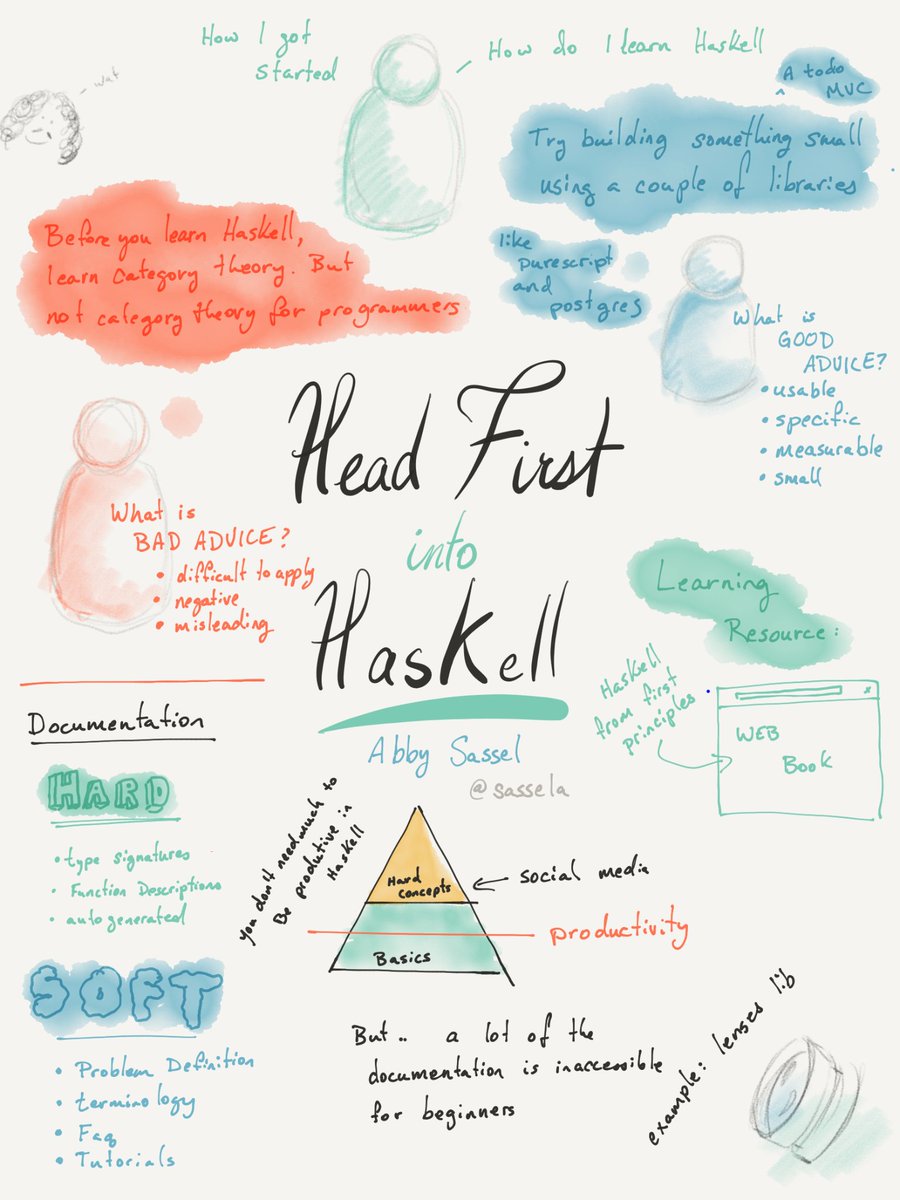 How I got
started
How do I learn Haskell
wat
A todo
^ MVC
Try building something small
using a couple of libraries
like
purescript
and
postgres
Before you learn Haskell,
learn category theory. But
not category theory for programmers
What is
GOOD
ADVICE?
• usable
• specific
• measurable
• small
What is
BAD ADVICE?
• difficult to apply
• negative
• misleading
Head First
into
Haskell
Abby Sassel
@sassela
Learning
Resource:
Haskell
from first
principles
WEB
Book
x
Documentation
HARD
• type signatures
• Function Descriptions
• autogenerated
SOFT
• Problem Definition
• terminology
• Faq
• Tutorials
you don't need much to
Be produtive in
Haskell
Hard
concepts
social media
productivity
Basics
But.. a lot of the
documentation is inaccessible
for beginners
example: lenses lib